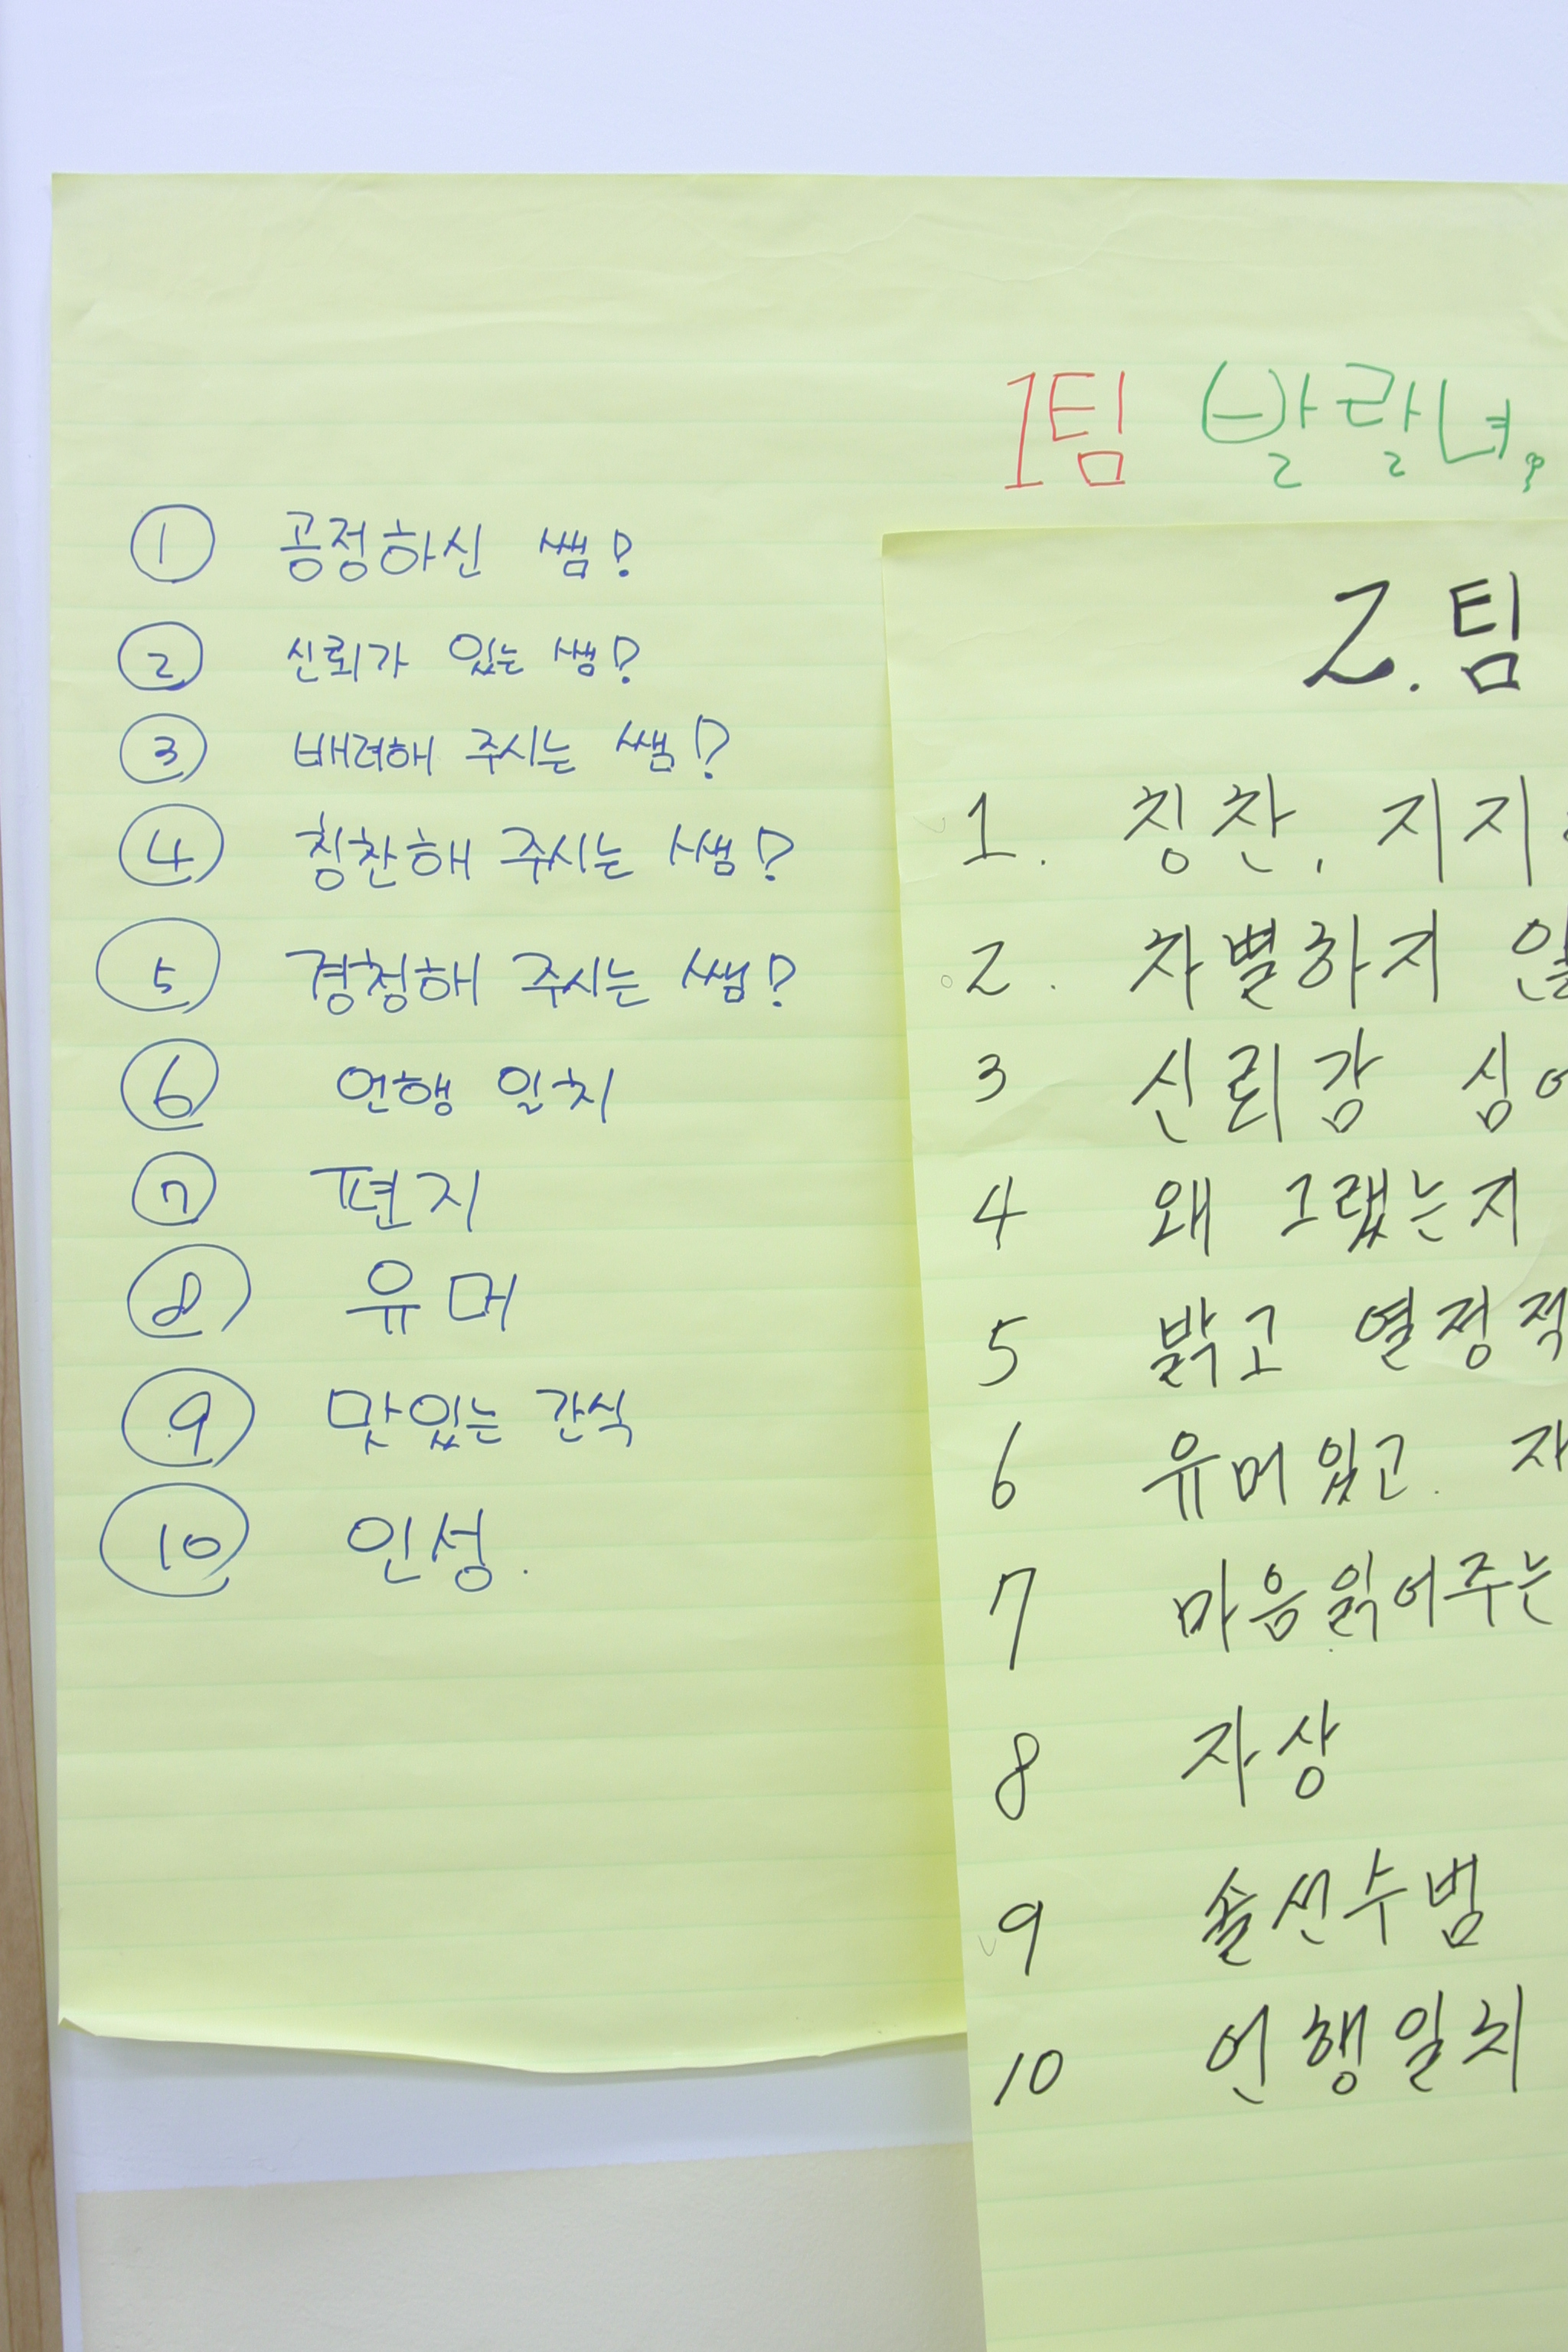 1팀 발랄녀
① 공정하신 쌤!
② 신뢰가 있는 쌤!
③ 배려해 주시는 쌤!
④ 칭찬해 주시는 쌤!
⑤ 경청해 주시는 쌤!
⑥ 언행 일치
⑦ 편지
⑧ 유머
⑨ 맛있는 간식
⑩ 인성.
2. 팀
1. 칭찬, 지지
2. 차별하지
3 신뢰감 심어
4 왜 그랬는지
5 밝고 열정적
6 유머있고.
7 마음읽어주는
8 자상
9 솔선수범
10 언행일치